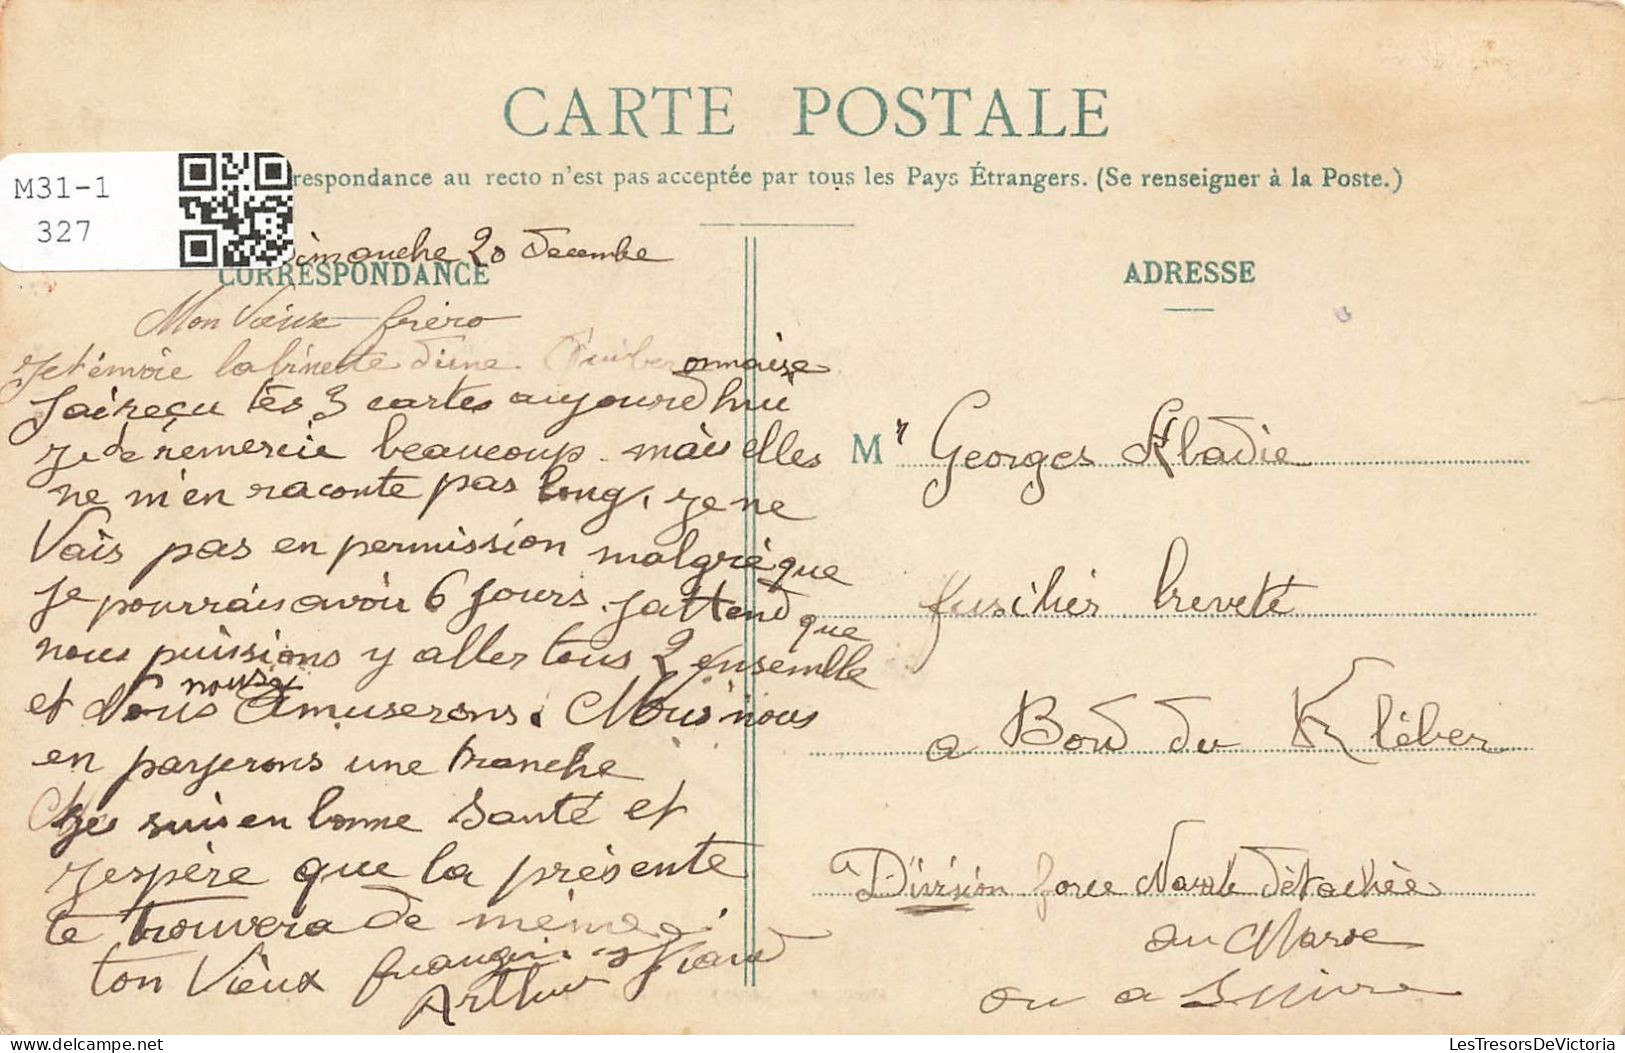 CARTE POSTALE
respondance au recto n'est pas acceptée par tous les Pays Étrangers. (Se renseigner à la Poste.)
M31-1
327
Dimanche 20 Decembe
CORRESPONDANCE
ADRESSE
Mon Vieux frèro
Je t'envoie la binette d'une Quiberonnaise
J'ai reçu tes 3 cartes aujourd'hui
je te remercie beaucoup mais elles
ne m'en raconte pas long, je ne
Vais pas en permission malgrè que
je pourrais avoir 6 jours. J'attend que
nous puissions y aller tous 2 ensemble
et nous nous y amuserons. Nous nous
en payerons une tranche
Je suis en bonne Santé et
J'espère que la présente
te trouvera de même
ton Vieux frangin
Arthur
Mr Georges Abadie
fusilier breveté
a Bord du Kléber
Division force Navale Détachée
au Maroc
ou a Suivre
LesTresorsDeVictoria.com